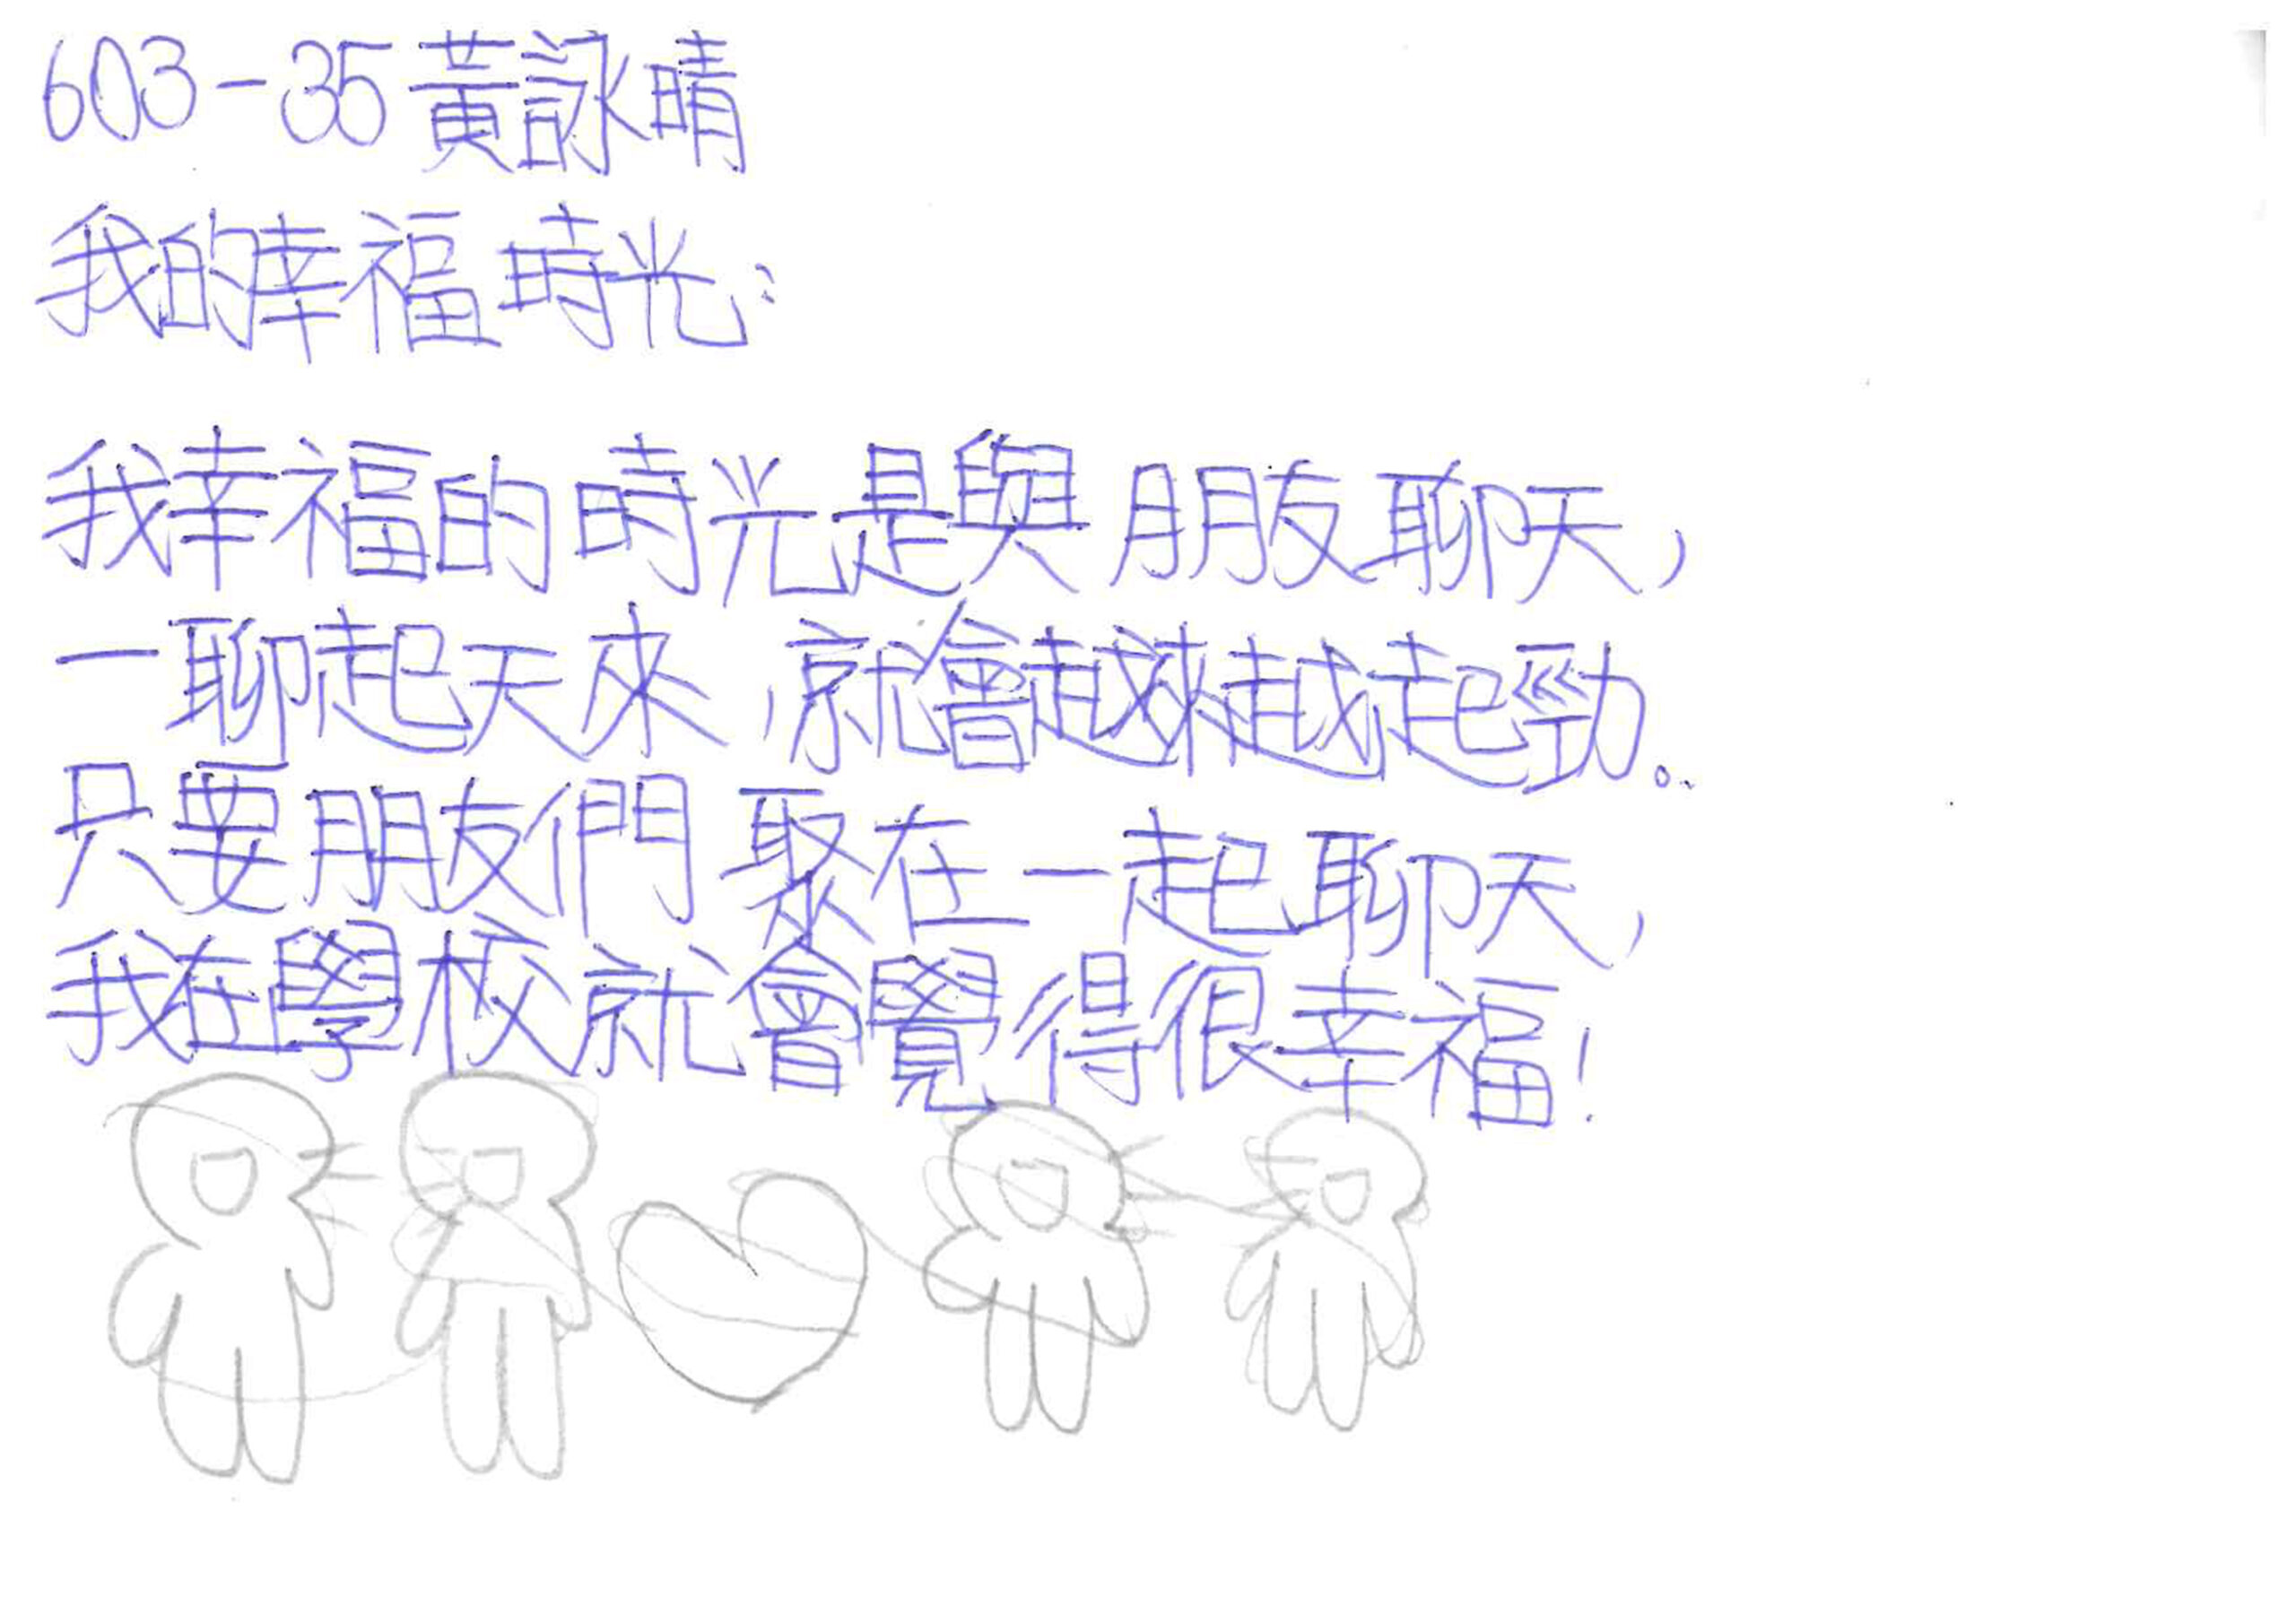 603-35黃詠晴
我的幸福時光:
我幸福的時光是與朋友聊天,
一聊起天來,就會越來越起勁。
只要朋友們聚在一起聊天,
我在學校就會覺得很幸福!